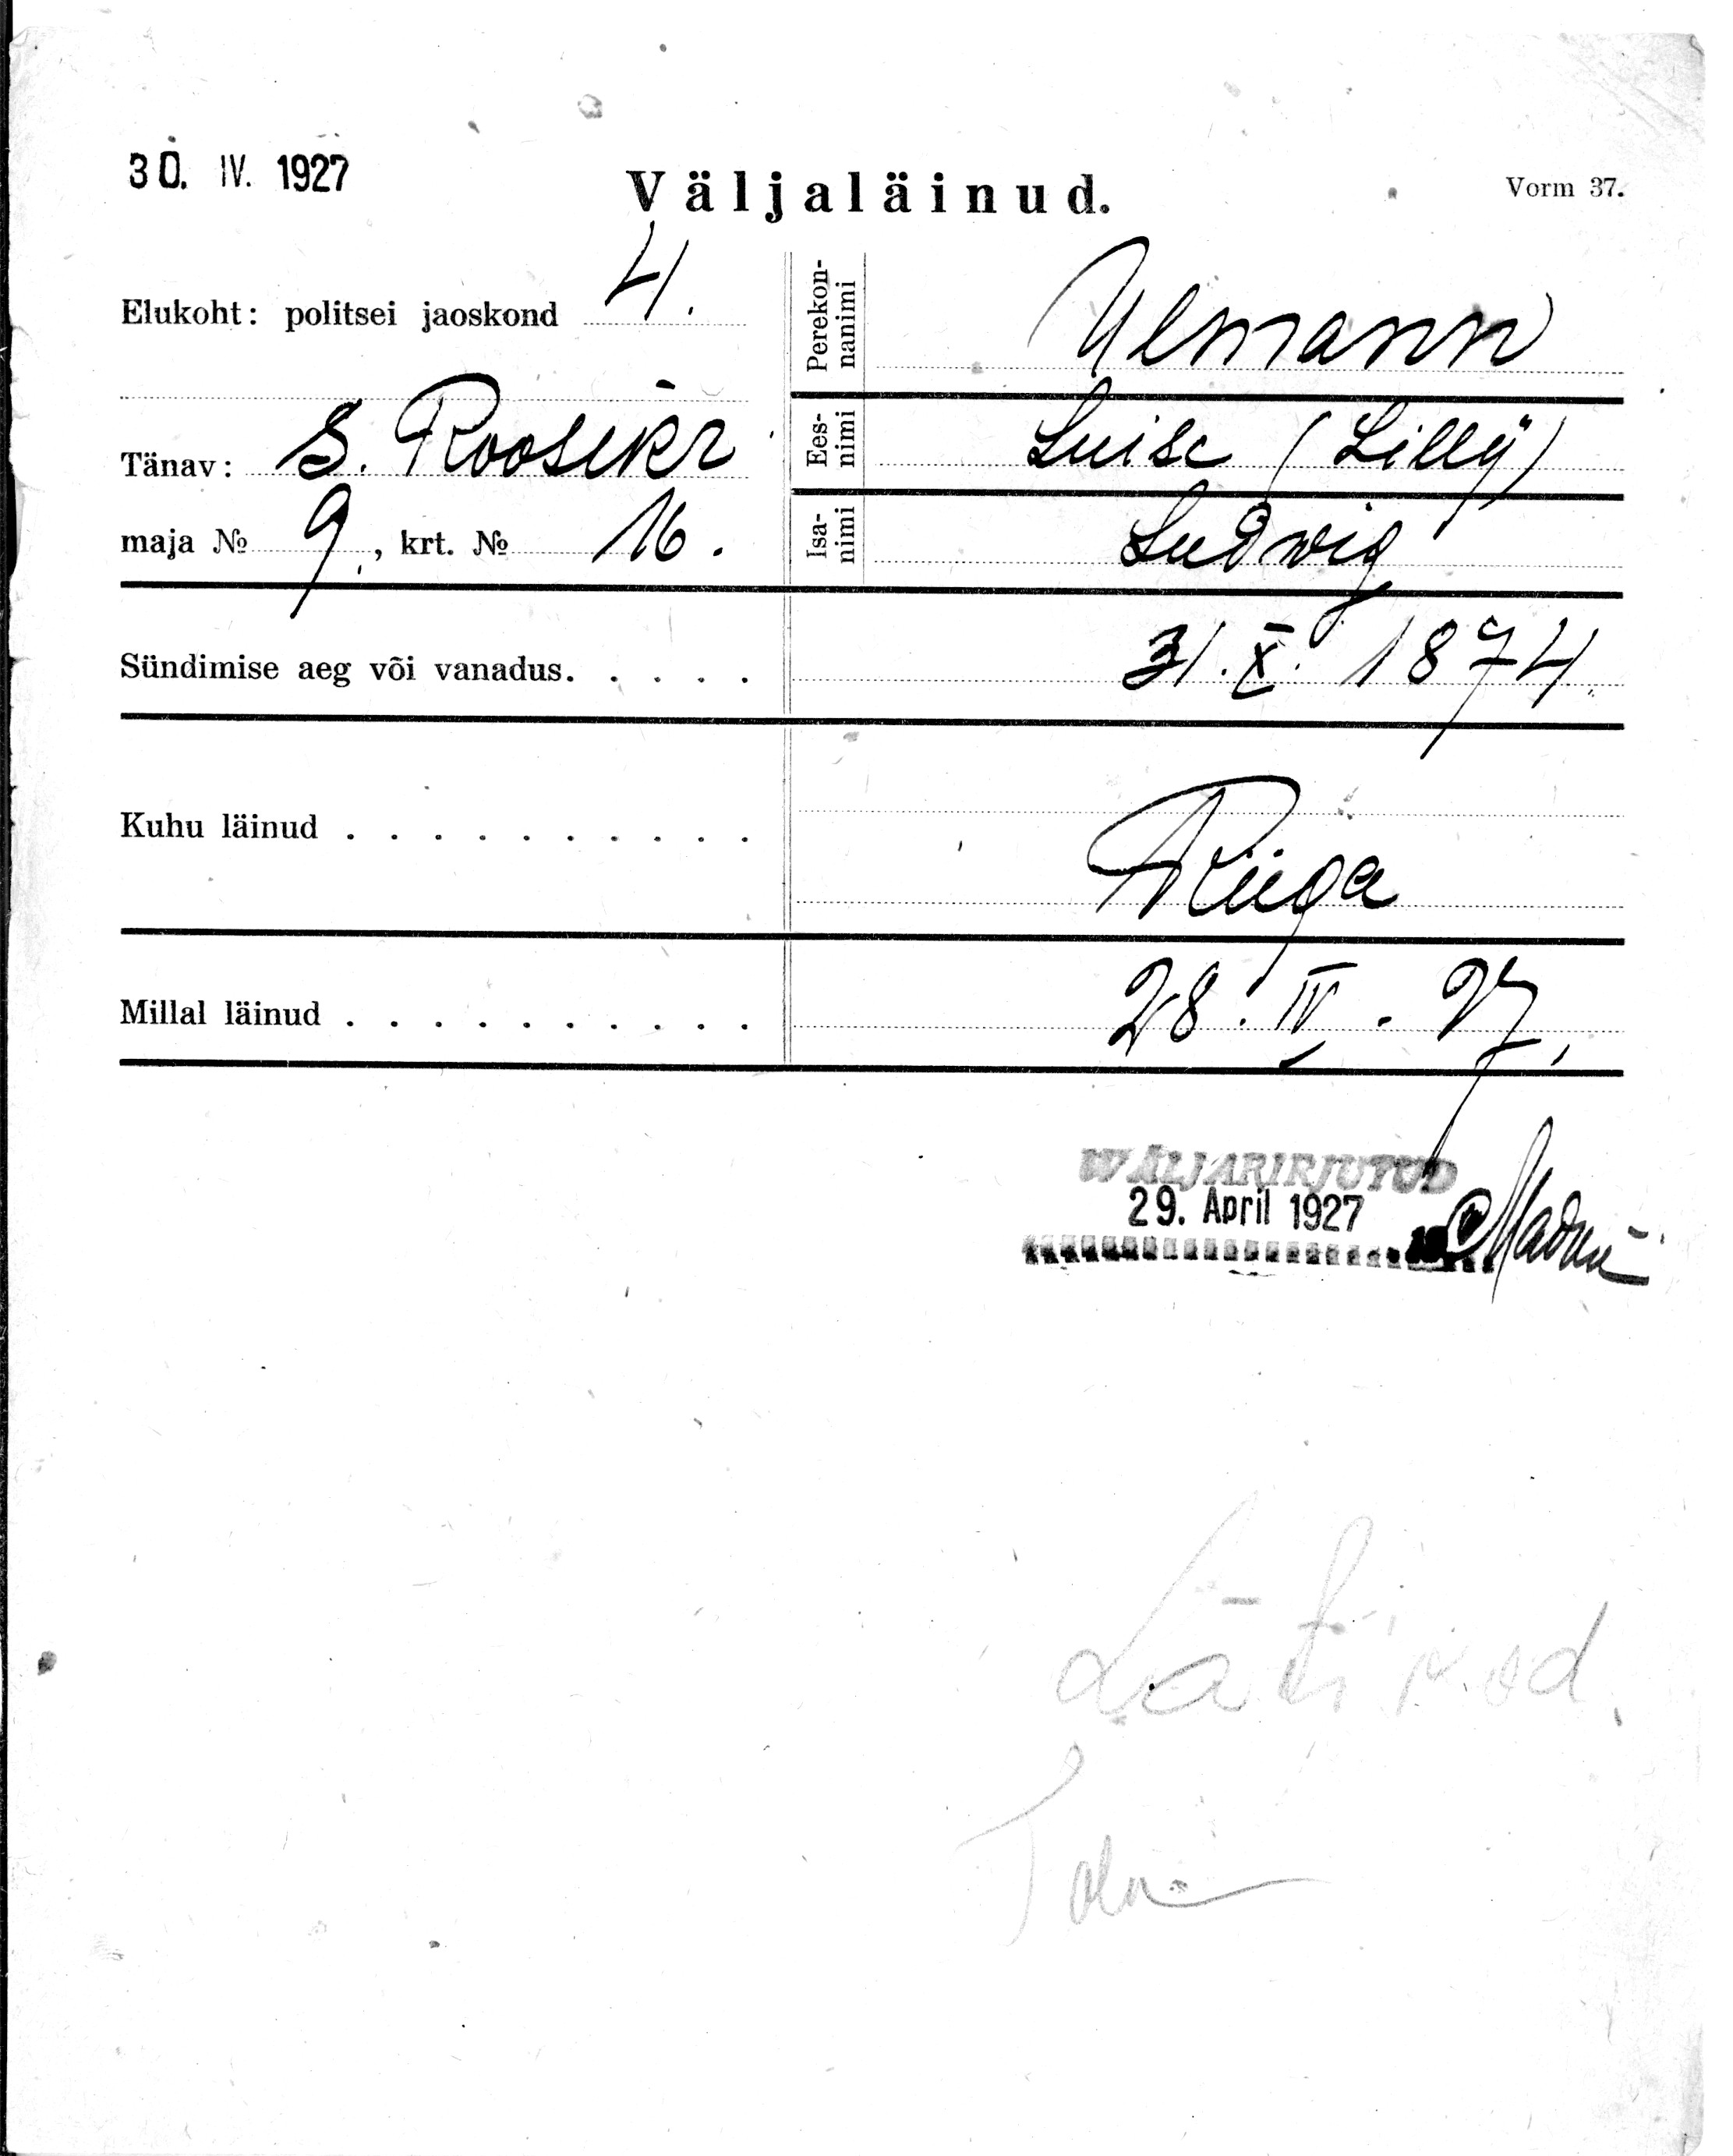 30. IV. 1927
Väljaläinud.
Vorm 37.
Elukoht: politsei jaoskond 4.
Tänav: S. Roosikr
maja № 9., krt. № 16.
Perekonnanimi Ulmann
Eesnimi Luise (Lilly)
Isanimi Ludwig
Sündimise aeg või vanadus. . . . . 31. X. 1874.
Kuhu läinud . . . . . . . . . . Riiga
Millal läinud . . . . . . . . . . 28. IV. 27.
WÄLJAKIRJUTUD
29. April 1927
Läti kod.